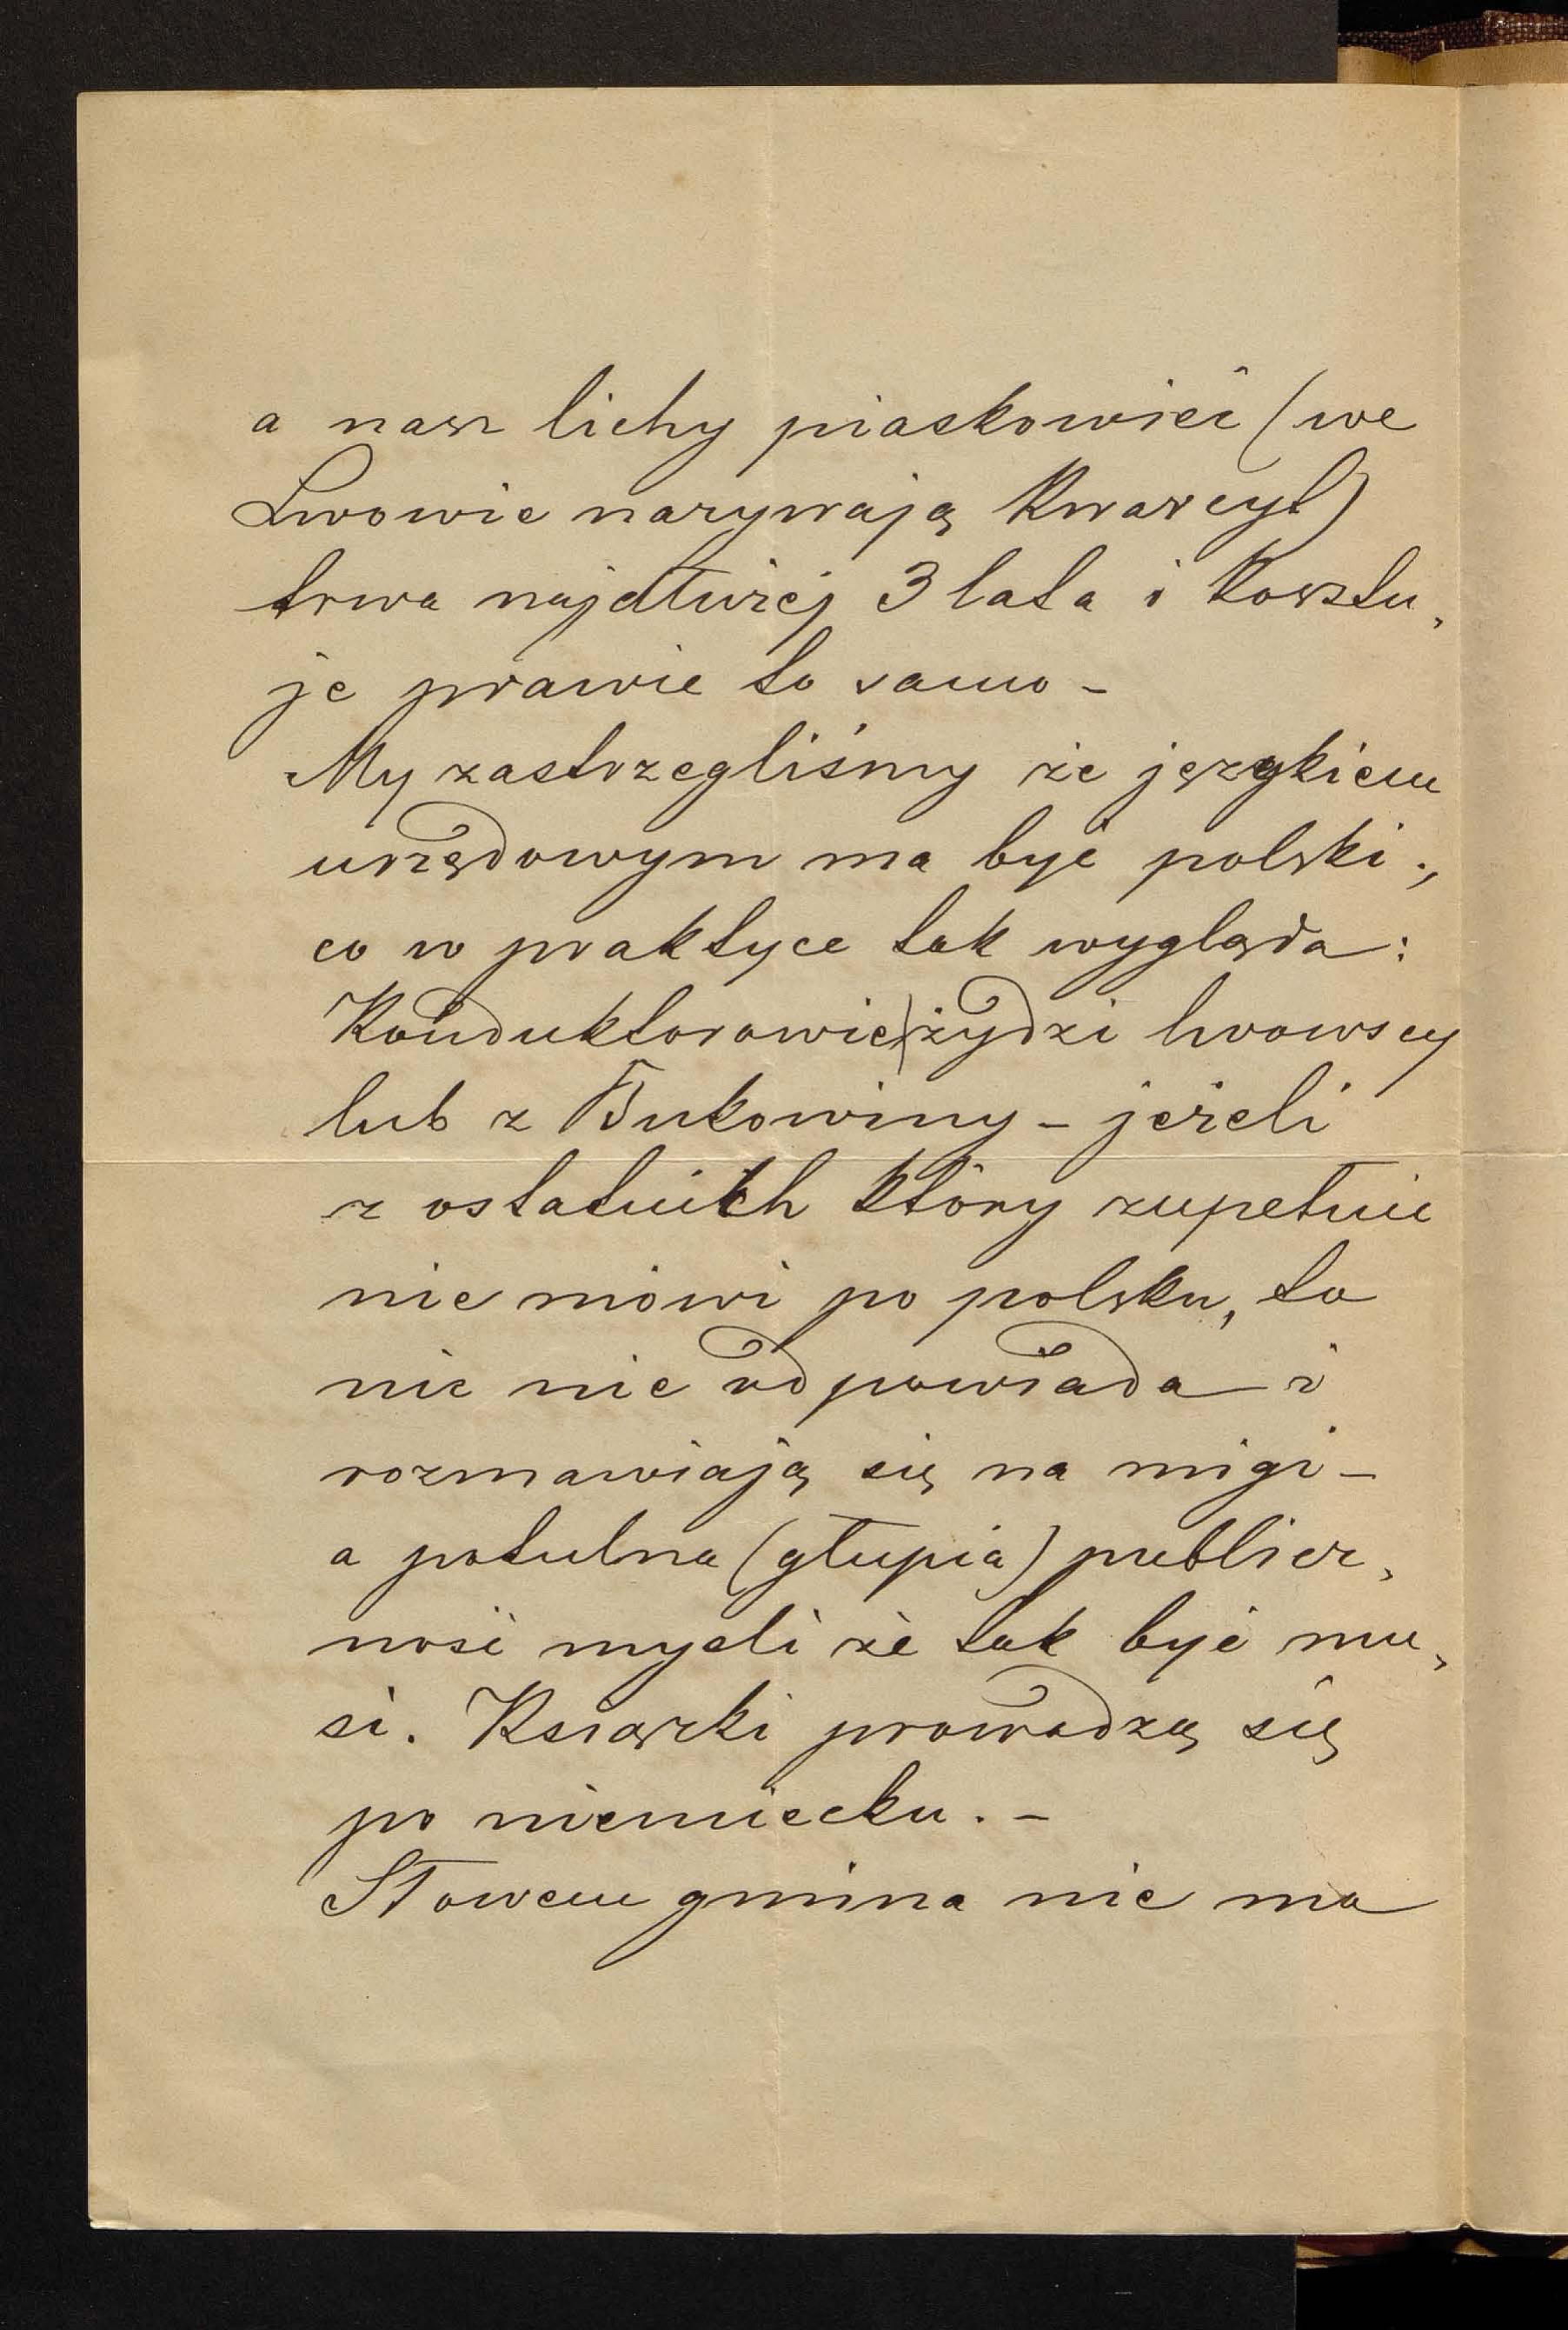 a nasz lichy piaskowieć (we
Lwowie nazywają Kwarcyt)
trwa najdłużej 3 lata i Kosztu,
je prawie to samo -
My zastrzegliśmy że językiem
urzędowym ma być polski.,
co w praktyce tak wygląda:
Konduktorowie żydzi lwowscy
lub z Bukowiny - jeżeli
z ostatnich który zupełnie
nie mówi po polsku, to
nic nie odpowiada i
rozmawiają się na migi -
a potulna (głupia) publicz,
ność myśli że tak być mu,
si. Książki prowadzą się
po niemiecku. -
Słowem gmina nie ma